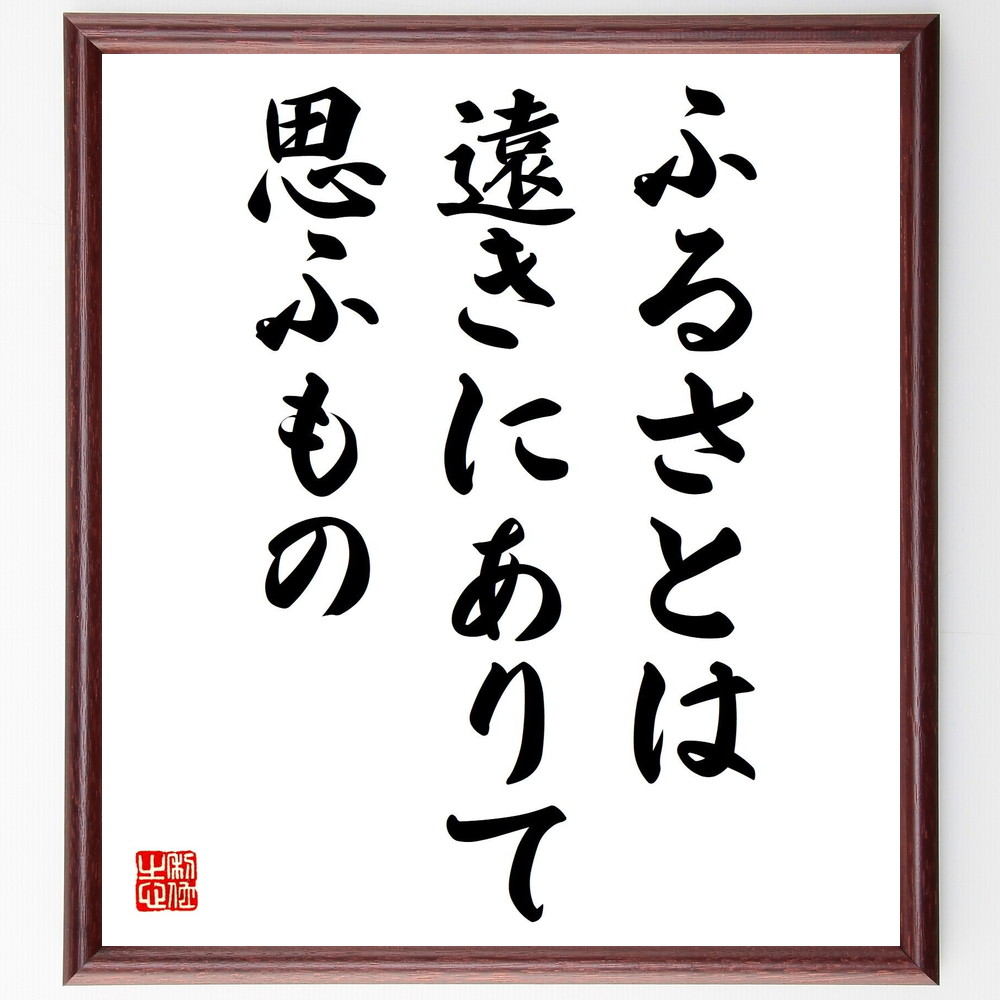 ふるさとは
遠きにありて
思ふもの